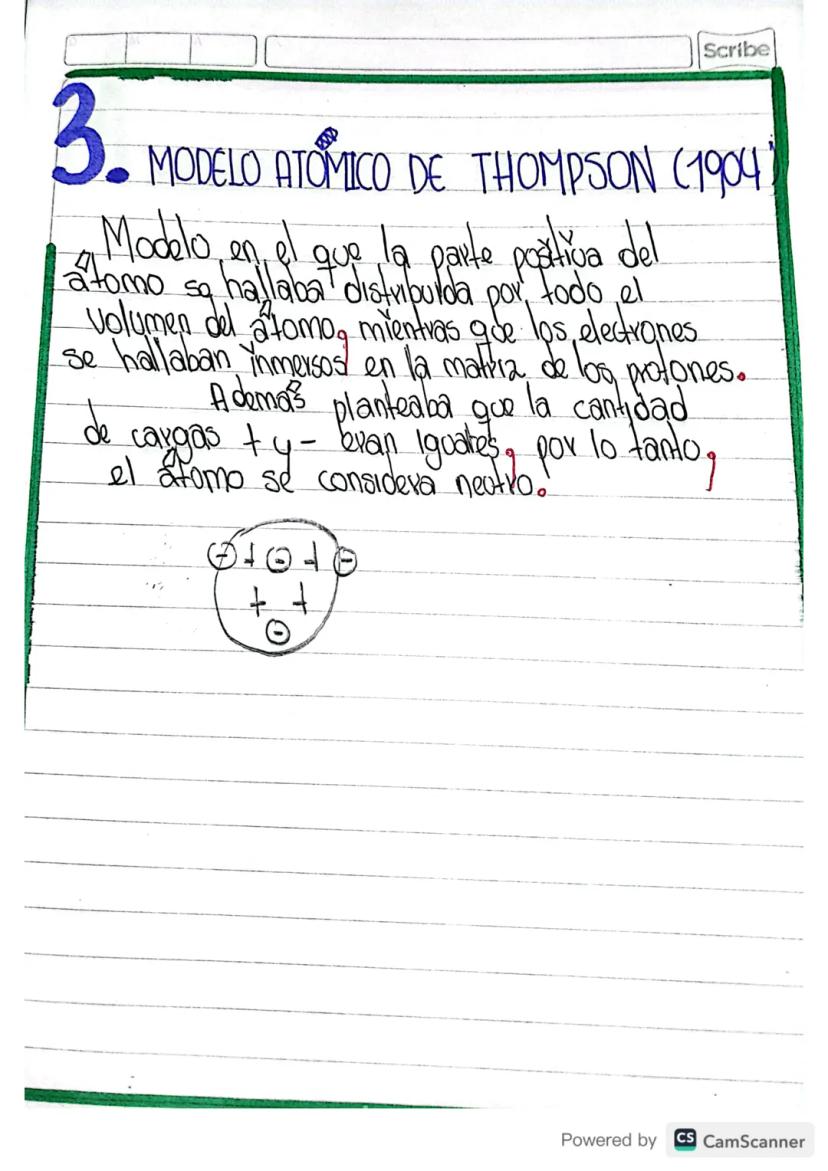 Scribe
3. MODELO ATÓMICO DE THOMPSON (1904)
Modelo en el que la parte positiva del
átomo se hallaba distribuida por todo el
volumen del átomo, mientras que los electrones
se hallaban inmersos en la matriz de los protones.
Además planteaba que la cantidad
de cargas + y - eran iguales, por lo tanto,
el átomo se considera neutro.
- + - + -
+ +
-
Powered by CS CamScanner